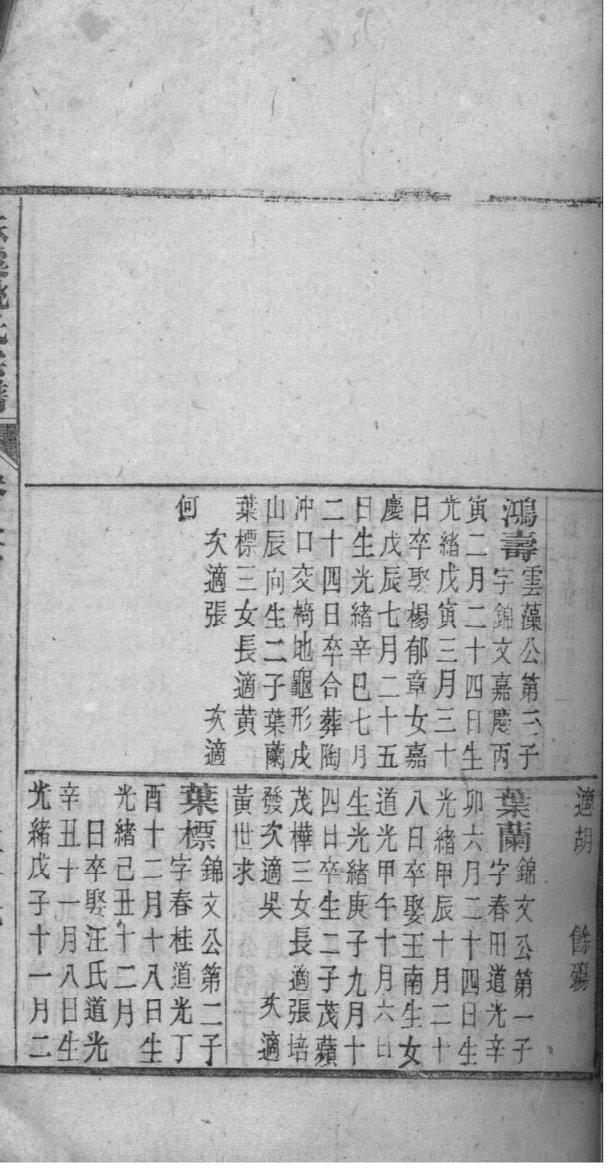 鴻壽雲藻公第三子
字錦文嘉慶丙
寅二月二十四日生
光緒戊寅三月三十
日卒娶楊郁章女嘉
慶戊辰七月二十五
日生光緒辛巳七月
二十四日卒合葬陶
冲口交椅地龜形戌
山辰向生二子葉蘭
葉標三女長適黃
次適張 次適
何
適胡 餘殤
葉蘭錦文公第一子
字春田道光辛
卯六月二十四日生
光緒甲辰十月二十
八日卒娶王南生女
道光甲午十月六日
生光緒庚子九月十
四日卒生二子茂蘋
茂樺三女長適張培
發次適吳 次適
黃世求
葉標錦文公第二子
字春桂道光丁
酉十二月十八日生
光緒己丑十二月
日卒娶汪氏道光
辛丑十一月八日生
光緒戊子十一月二
姚氏宗譜